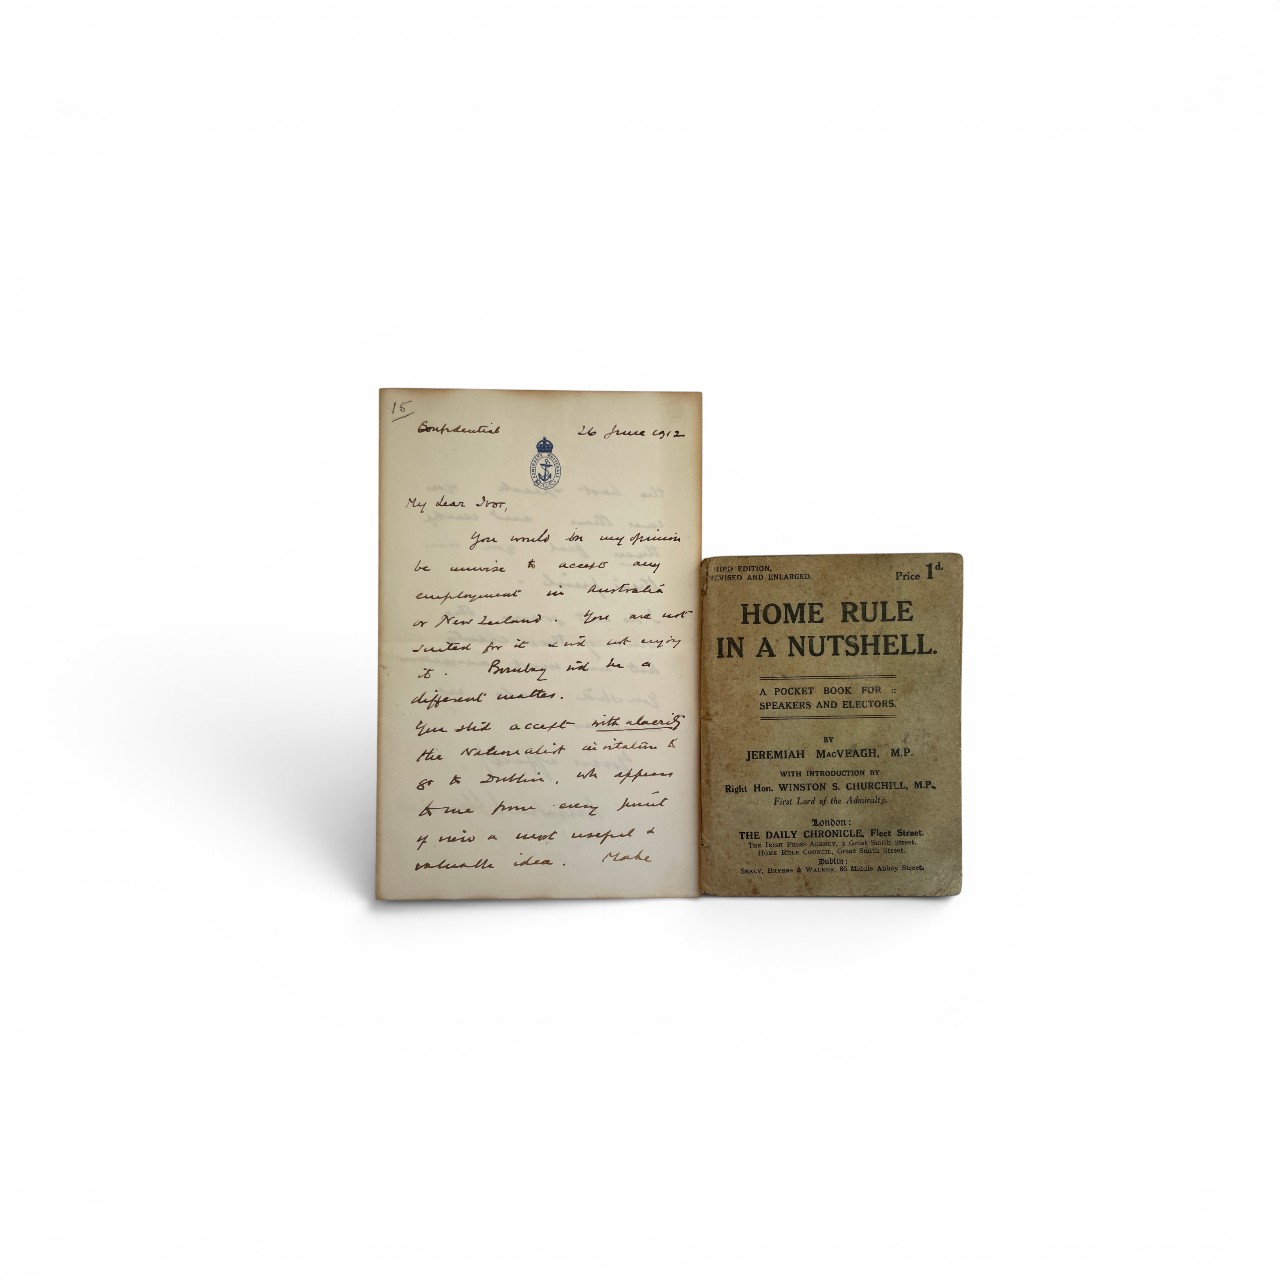 15
Confidential 26 June 1912
My dear Ivor,
You would in my opinion
be unwise to accept any
employment in Australia
or New Zealand. You are not
suited for it & wd not enjoy
it. Bombay wd be a
different matter.
You shd accept with alacrity
the Nationalist invitation to
go to Dublin, wh appears
to me from every point
of view a most useful &
valuable idea. Make
THIRD EDITION,
REVISED AND ENLARGED.
Price 1d.
HOME RULE
IN A NUTSHELL.
A POCKET BOOK FOR ::
SPEAKERS AND ELECTORS.
BY
JEREMIAH MACVEAGH, M.P.
WITH INTRODUCTION BY
Right Hon. WINSTON S. CHURCHILL, M.P.,
First Lord of the Admiralty.
London:
THE DAILY CHRONICLE, Fleet Street.
THE IRISH PRESS AGENCY, 2 Great Smith Street.
HOME RULE COUNCIL, Great Smith Street.
Dublin:
SEALY, BRYERS & WALKER, 86 Middle Abbey Street.